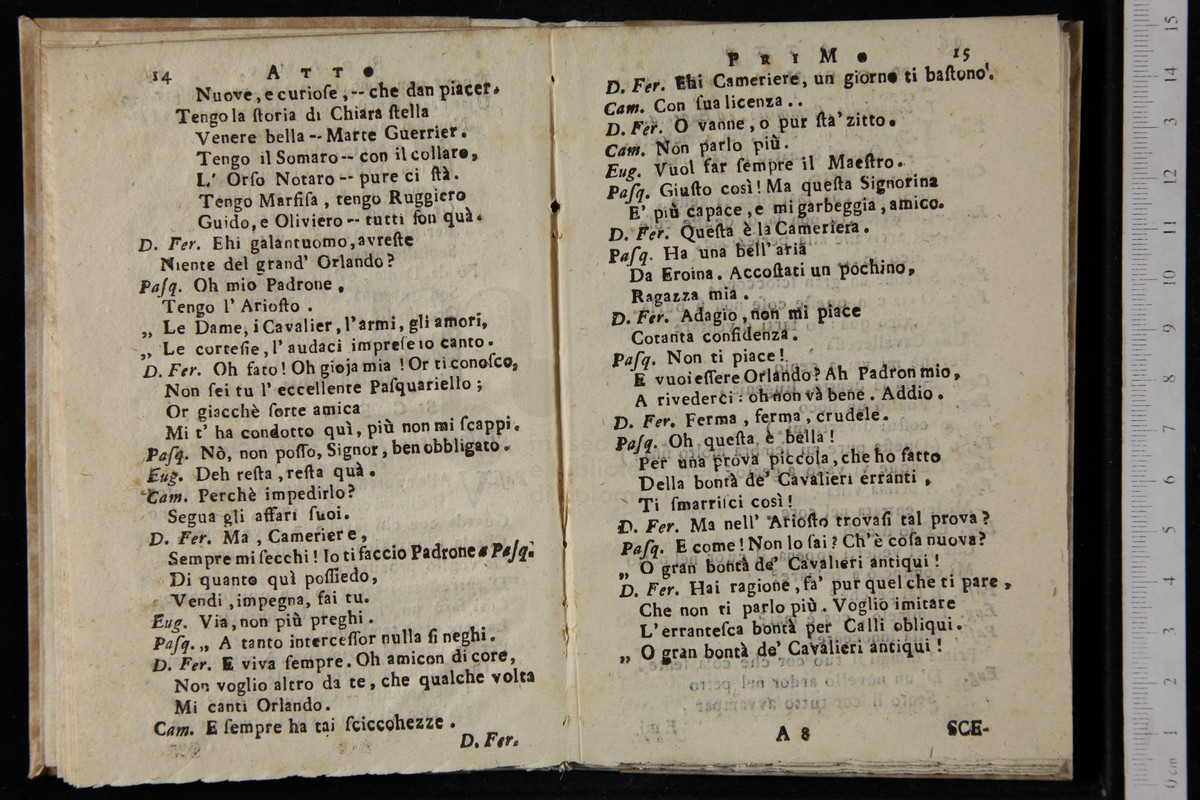 14 ATTO
Nuove, e curioſe, -- che dan piacer.
Tengo la ſtoria di Chiara ſtella
Venere bella -- Marte Guerrier.
Tengo il Somaro -- con il collaro,
L' Orſo Notaro -- pure ci ſtà.
Tengo Marfiſa, tengo Ruggiero
Guido, e Oliviero -- tutti ſon quà.
D. Fer. Ehi galantuomo, avreſte
Niente del grand' Orlando?
Paſq. Oh mio Padrone,
Tengo l' Arioſto.
„ Le Dame, i Cavalier, l'armi, gli amori,
„ Le corteſie, l' audaci impreſe io canto.
D. Fer. Oh fato! Oh gioja mia! Or ti conoſco,
Non ſei tu l' eccellente Paſquariello;
Or giacchè ſorte amica
Mi t' ha condotto quì, più non mi ſcappi.
Paſq. Nò, non poſſo, Signor, ben obbligato.
Eug. Deh reſta, reſta quà.
Cam. Perchè impedirlo?
Segua gli affari ſuoi.
D. Fer. Ma, Cameriere,
Sempre mi ſecchi! Io ti faccio Padrone a Paſq.
Di quanto quì poſſiedo,
Vendi, impegna, fai tu.
Eug. Via, non più preghi.
Paſq. „ A tanto interceſſor nulla ſi neghi.
D. Fer. E viva ſempre. Oh amicon di core,
Non voglio altro da te, che qualche volta
Mi canti Orlando.
Cam. E ſempre ha tai ſciccohezze.
D. Fer.
PRIMO 15
D. Fer. Ehi Cameriere, un giorno ti baſtono'.
Cam. Con ſua licenza..
D. Fer. O vanne, o pur ſta' zitto.
Cam. Non parlo più.
Eug. Vuol far ſempre il Maeſtro.
Paſq. Giuſto così! Ma queſta Signorina
E' più capace, e mi garbeggia, amico.
D. Fer. Queſta è la Cameriera.
Paſq. Ha una bell' aria
Da Eroina. Accoſtati un pochino,
Ragazza mia.
D. Fer. Adagio, non mi piace
Cotanta confidenza.
Paſq. Non ti piace!
E vuoi eſſere Orlando? Ah Padron mio,
A rivederci: oh non và bene. Addio.
D. Fer. Ferma, ferma, crudele.
Paſq. Oh queſta è bella!
Per una prova piccola, che ho fatto
Della bontà de' Cavalieri erranti,
Ti ſmarriſci così!
D. Fer. Ma nell' Arioſto trovaſi tal prova?
Paſq. E come! Non lo ſai? Ch'è coſa nuova?
„ O gran bontà de' Cavalieri antiqui!
D. Fer. Hai ragione, fa' pur quel che ti pare,
Che non ti parlo più. Voglio imitare
L' erranteſca bontà per Calli obliqui.
„ O gran bontà de' Cavalieri antiqui!
A 8 SCE-
0 cm 1 2 3 4 5 6 7 8 9 10 11 12 3 14 15